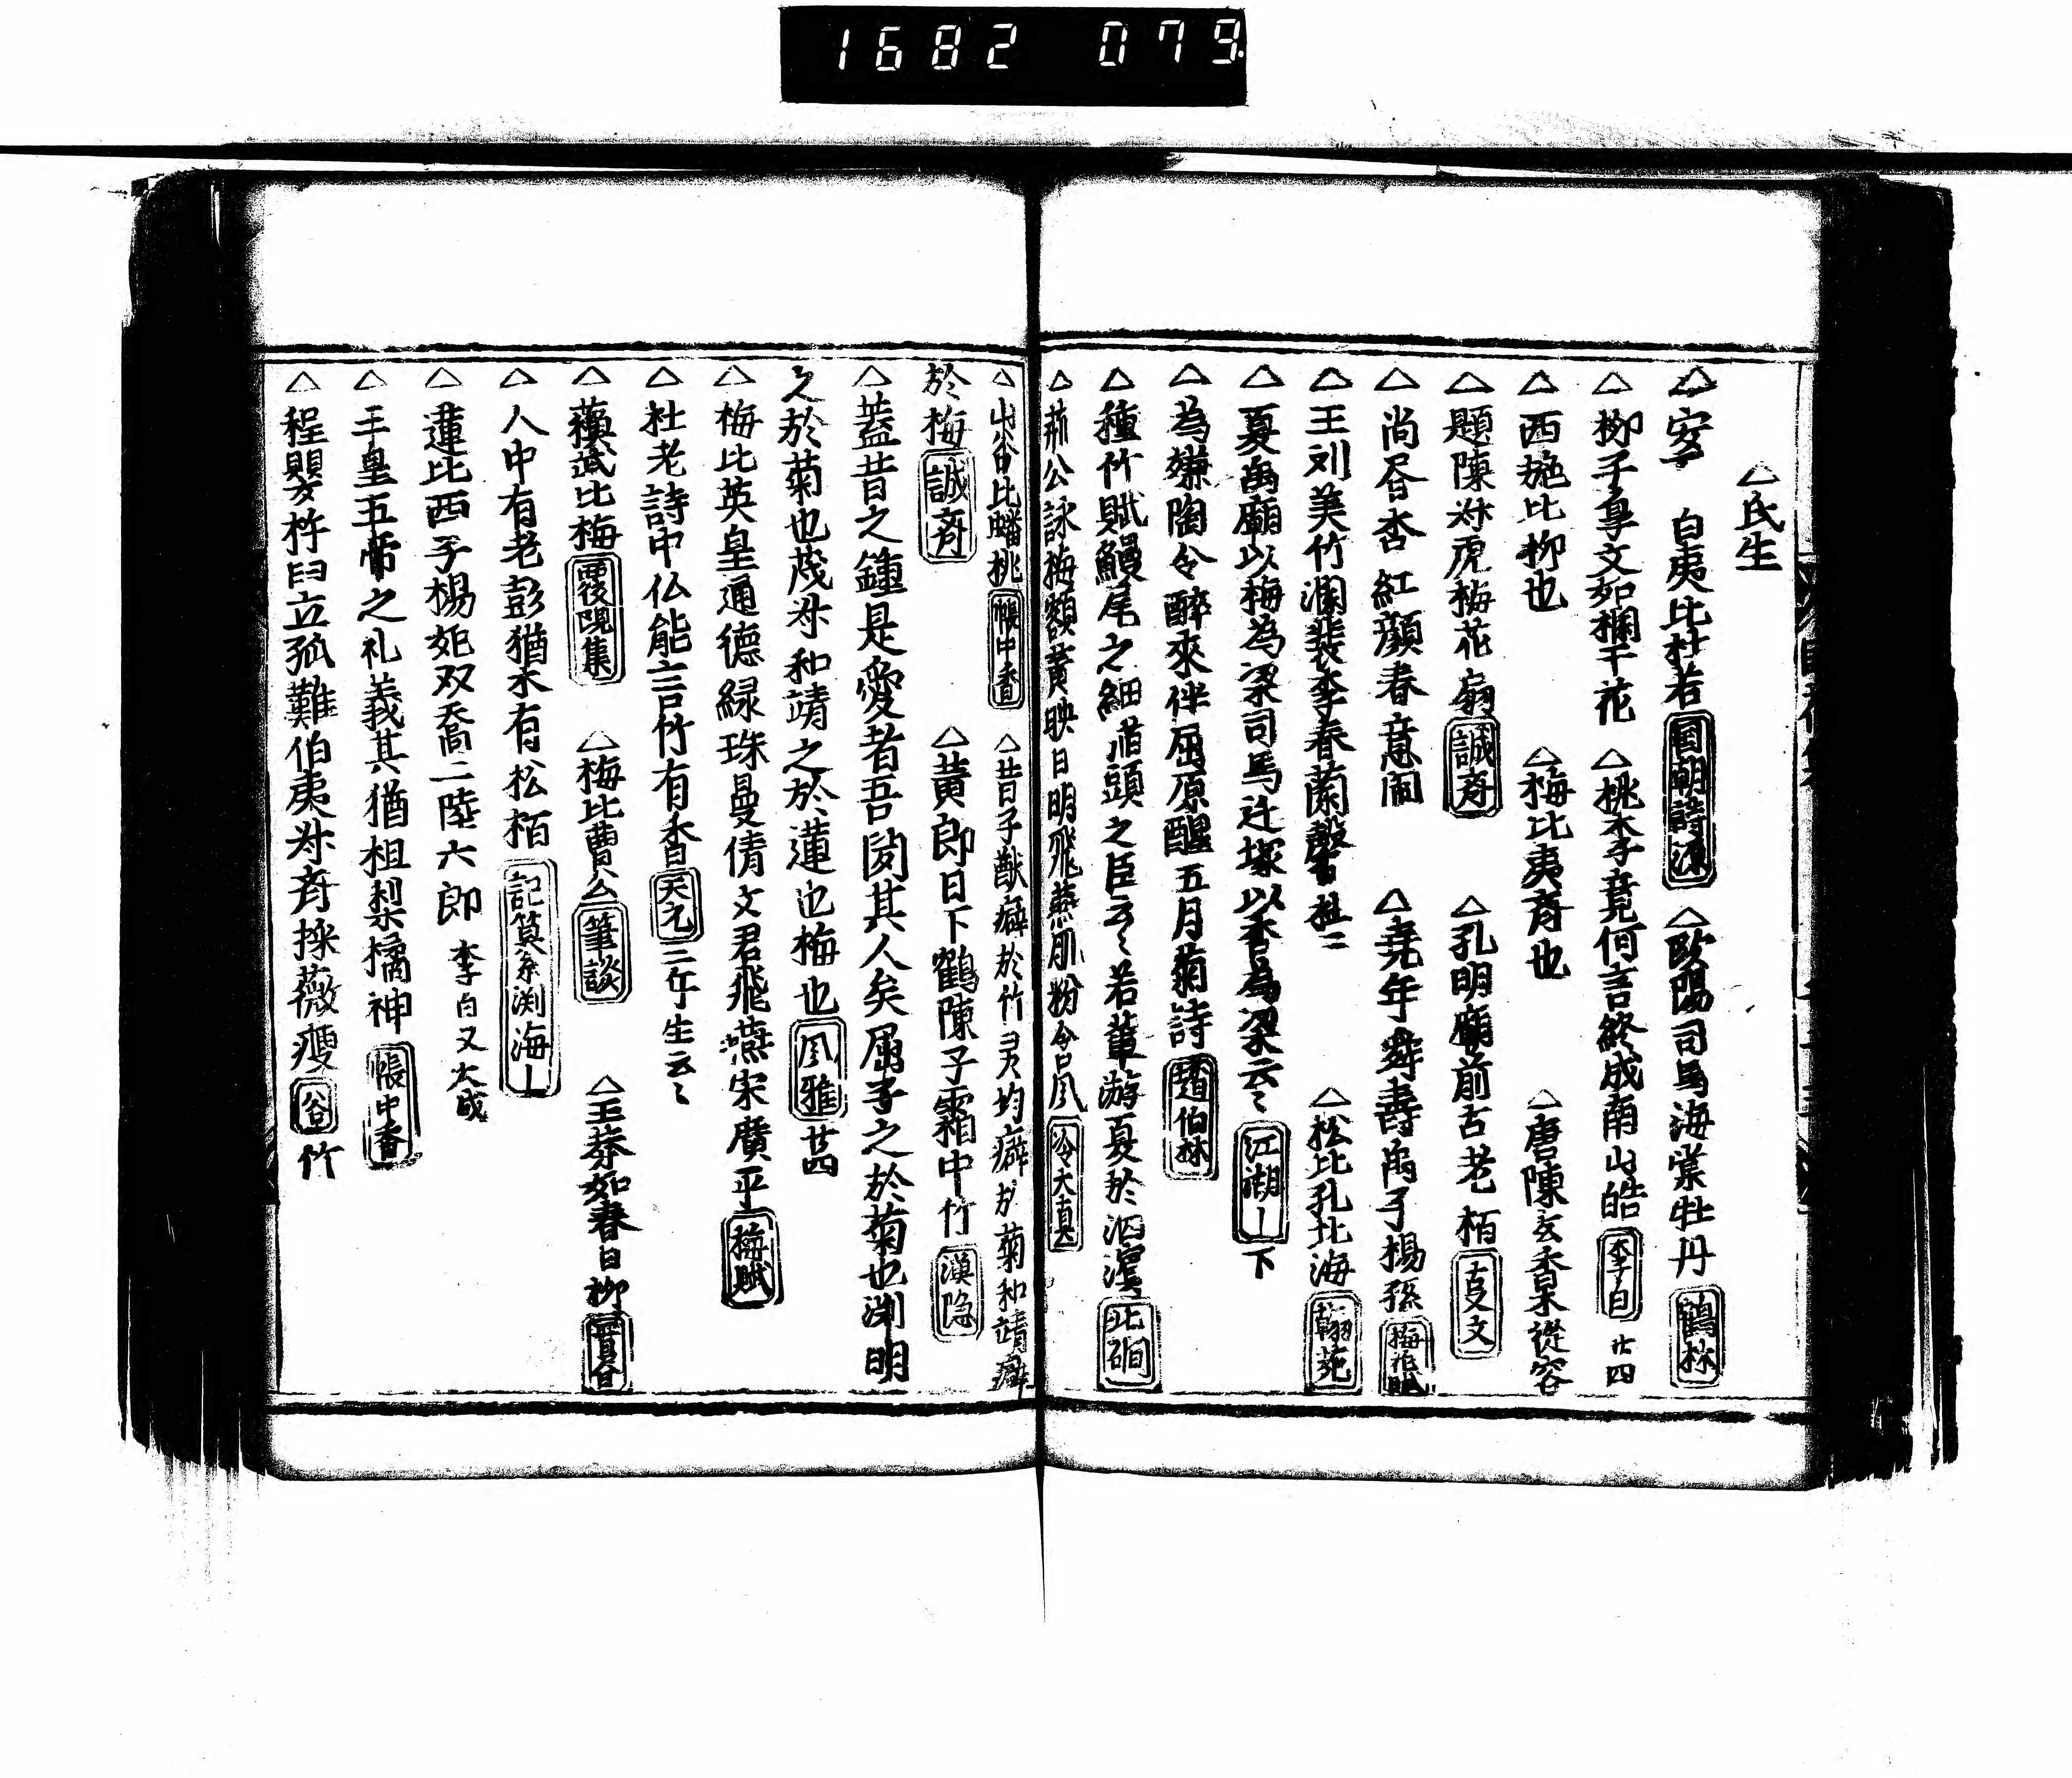 1682 079
△氏生
△安 白夷比杜若 国朝詩源 △欧陽司馬海棠牡丹 鶴林
△柳子身文如欄干花 △桃李竟何言終成南山皓 李白 廿四
△西施比柳也 △梅比夷斉也 △唐陳玄香杲從容
△題陳叔虎梅花扇 誠斉 △孔明廟前古老栢 古文
△尚昏杏紅顔春意閙 △堯年舜壽禹子楊孫 梅花賦
△王刘美竹瀾裴李春蘭馨 杜二 △松比孔北海 翰苑
△夏禹廟以梅為梁司馬迁塚以香為梁云〻 江湖 下
△為嫌陶令醉來伴屈原醒五月菊詩 趙伯林
△種竹賦鰻尾之細猫頭之臣云〻若輩游夏於泗濱 北礀
△荊公詠梅額黄映日明飛燕肌粉含風 冷大真
△山谷比蟠桃 帳中香 △昔子猷癖於竹灵均癖於菊和靖癖
於梅 誠斉 △黄郎日下鶴陳子霜中竹 漢隐
△蓋昔之鍾是愛者吾閲其人矣屈子之於菊也渕明
之於菊也茂叔和靖之於蓮也梅也 風雅 廿四
△梅比英皇通德緑珠曼倩文君飛燕宋廣平 梅賦
△杜老詩中仏能言竹有香 天元 三午生云〻
△蘇武比梅 後覞集 △梅比曹公 筆談 △王莽如春日柳
△人中有老彭猶木有松栢 記纂渕海
△蓮比西子楊妃双喬二陸六郎 李白又大成
△三皇五帝之礼義其猶柤梨橘神 帳中香
△程嬰杵臼立孤難伯夷叔斉採薇瘦 谷 竹